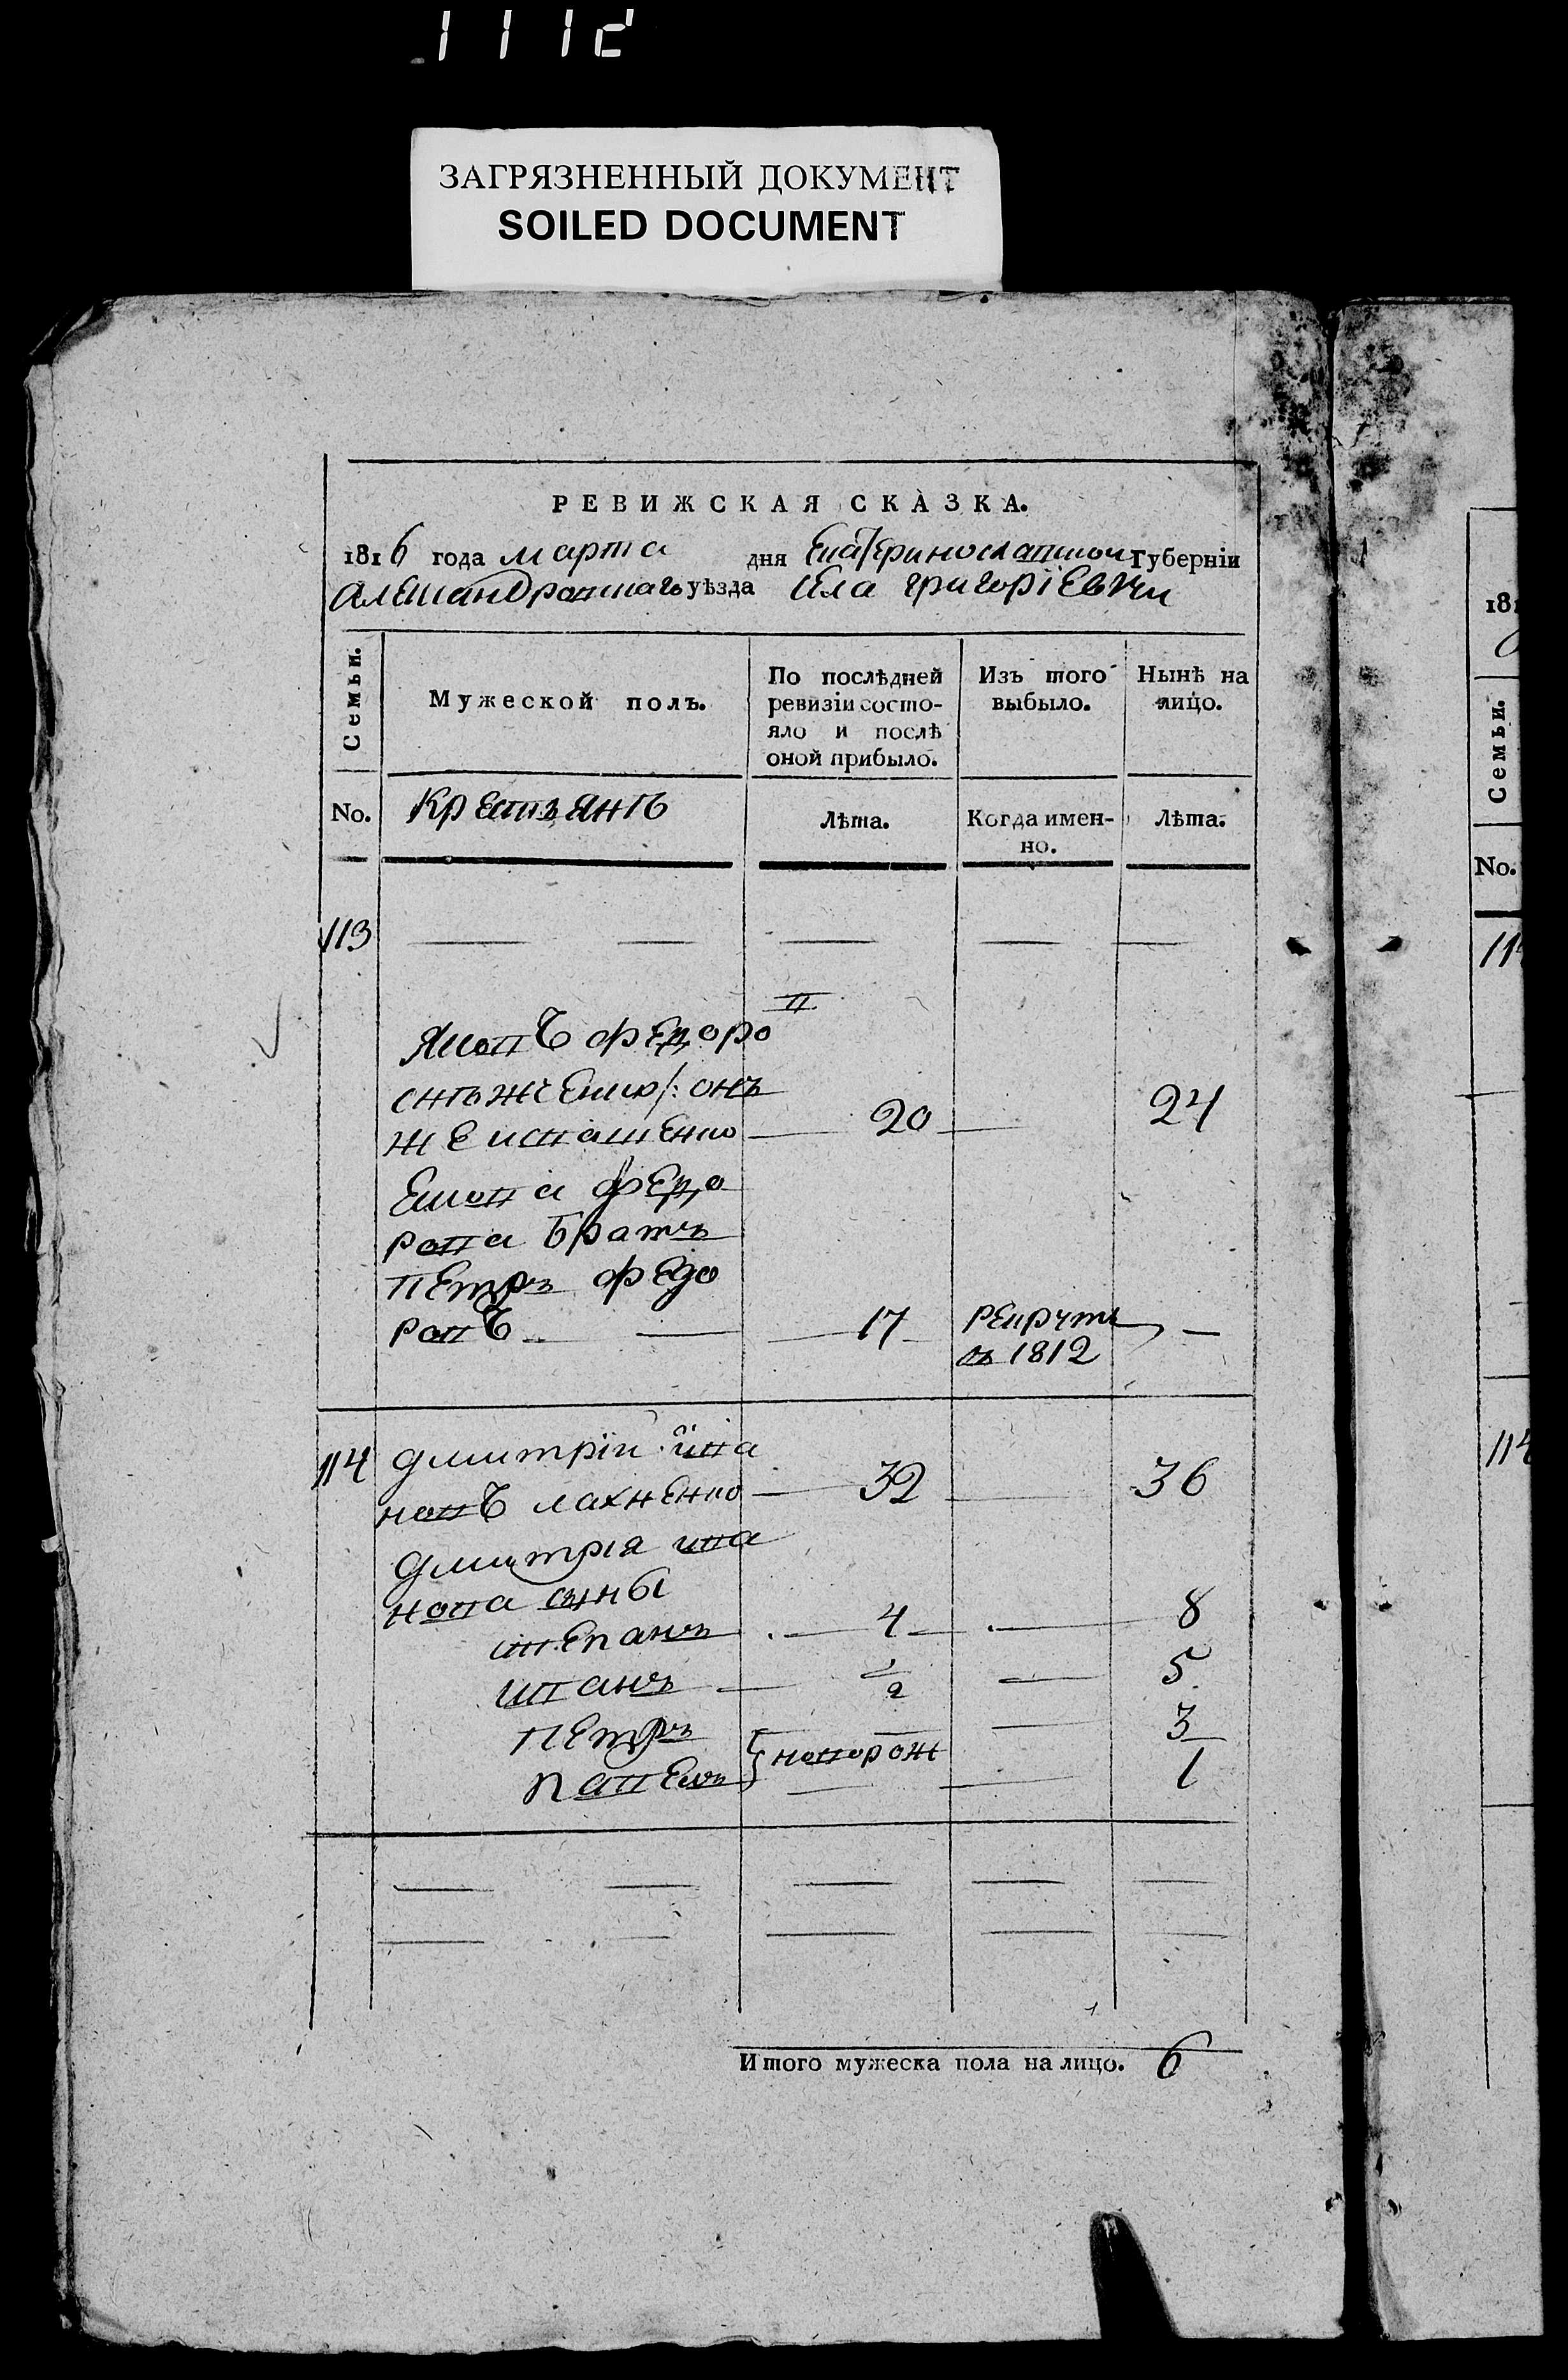 111
ЗАГРЯЗНЕННЫЙ ДОКУМЕНТ
SOILED DOCUMENT
РЕВИЖСКАЯ СКАЗКА.
1816 года марта дня Екатеринославской Губерніи
Александровскаго уѣзда села григоріевки
Семьи.
Мужеской полъ.
По послѣдней ревизіи состо-
яло и послѣ
оной прибыло.
Изъ того
выбыло.
Нынѣ на
лицо.
No.
Крестьянъ
Лѣта.
Когда имен-
но.
Лѣта.
113
II
Яковъ федоро
снѣженко /: онъ
же 20 24
Якова федо
рова братъ
петръ федо
ровъ 17 рекрутъ
въ 1812
114 дмитрій ива
новъ лахненко 32 36
дмитрія ива
нова сыны
степанъ 4 8
иванъ 1/2 5
петръ 3
павелъ } новорож 1
Итого мужеска пола на лицо. 6
181
Семьи.
No.
114